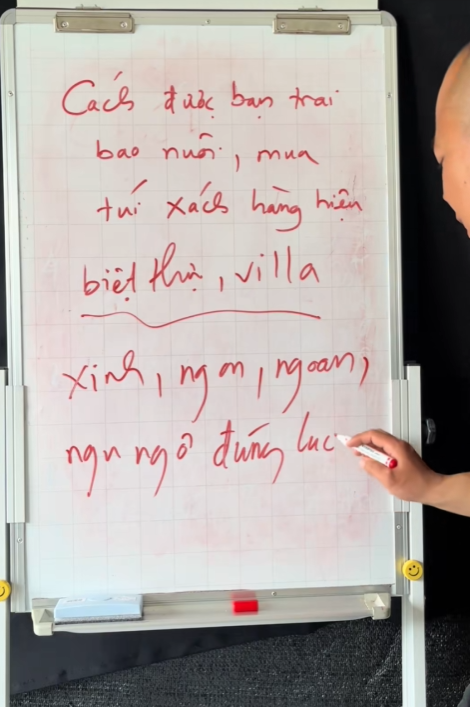 Cách được bạn trai
bao nuôi, mua
túi xách hàng hiệu
biệt thự, villa
xinh, ngon, ngoan,
ngu ngô đúng luc